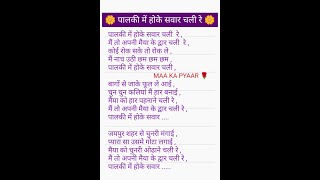 🌼 पालकी में होके सवार चली रे 🌼
पालकी में होके सवार चली रे ,
मैं तो अपनी मैया के द्वार चली रे ,
कोई रोक सके तो रोक ले ,
मैं नाच उठी छम छम छम ,
पालकी में होके सवार चली रे ,
MAA KA PYAAR🌹
बागों से जाके फूल ले आई ,
चुन चुन कलियां मैं हार बनाई ,
मैया को हार पहनाने चली रे ,
मैं तो अपनी मैया के द्वार चली रे ,
पालकी में होके सवार ....
जयपुर शहर से चुनरी मंगाई ,
प्यारा सा उसमे गोटा लगाई ,
मैया को चुनरी ओढ़ाने चली रे ,
मैं तो अपनी मैया के द्वार चली रे ,
पालकी में होके सवार .....